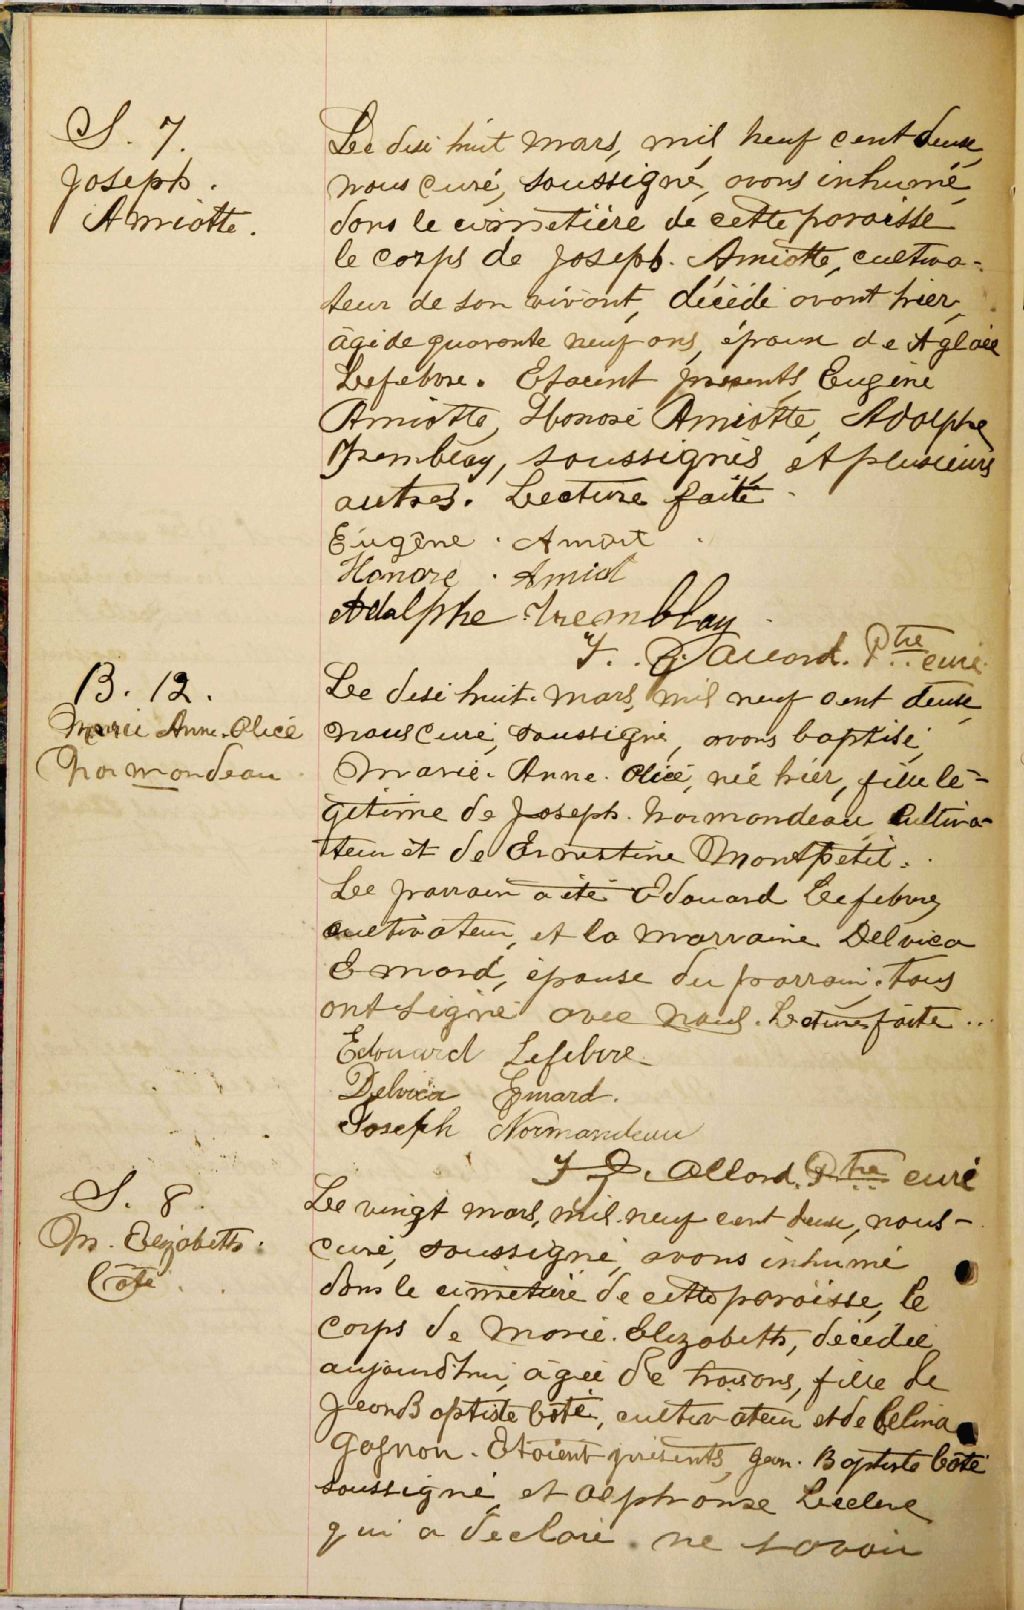 S. 7.
Joseph.
Amiotte.
Le dix huit mars, mil neuf cent deux,
nous curé, soussigné, avons inhumé,
dans le cimetière de cette paroisse
le corps de Joseph. Amiotte, cultiva-
teur de son vivant, décédé avant hier,
âgé de quarante neuf ans, époux de Aglaée
Lefebvre. Etaient présents, Eugène
Amiotte, Honoré Amiotte, Adolphe
Tremblay, soussignés, et plusieurs
autres. Lecture faite.
Eugène. Amiot
Honoré. Amiot
Adolphe Tremblay
Allard. Ptre curé.
B. 12.
Marie Anne. Alice
Normandeau
Le dix huit. mars, mil neuf cent deux,
nous curé, soussigné, avons baptisé,
Marie. Anne. Alice, née hier, fille lé-
gitime de Joseph. Normandeau, cultiva-
teur et de Ernestine Montpetit.
Le parrain a été Edouard Lefebvre,
cultivateur, et la marraine Delvica
Emard, épouse du parrain. Tous
ont signé avec nous. Lecture faite...
Edouard Lefebvre
Delvica Emard.
Joseph Normandeau
Allard. Ptre curé
S. 8.
M. Elizabeth.
Côté
Le vingt mars, mil neuf cent deux, nous-
curé, soussigné, avons inhumé
dans le cimetière de cette paroisse, le
corps de Marie. Elizabeth, décédée
aujourd'hui, âgée de trois ans, fille de
Jean Baptiste Côté, cultivateur et de Celina
Gagnon. Etaient présents, Jean. Baptiste Côté
soussigné, et Alphonse Leclerc
qui a déclaré ne savoir